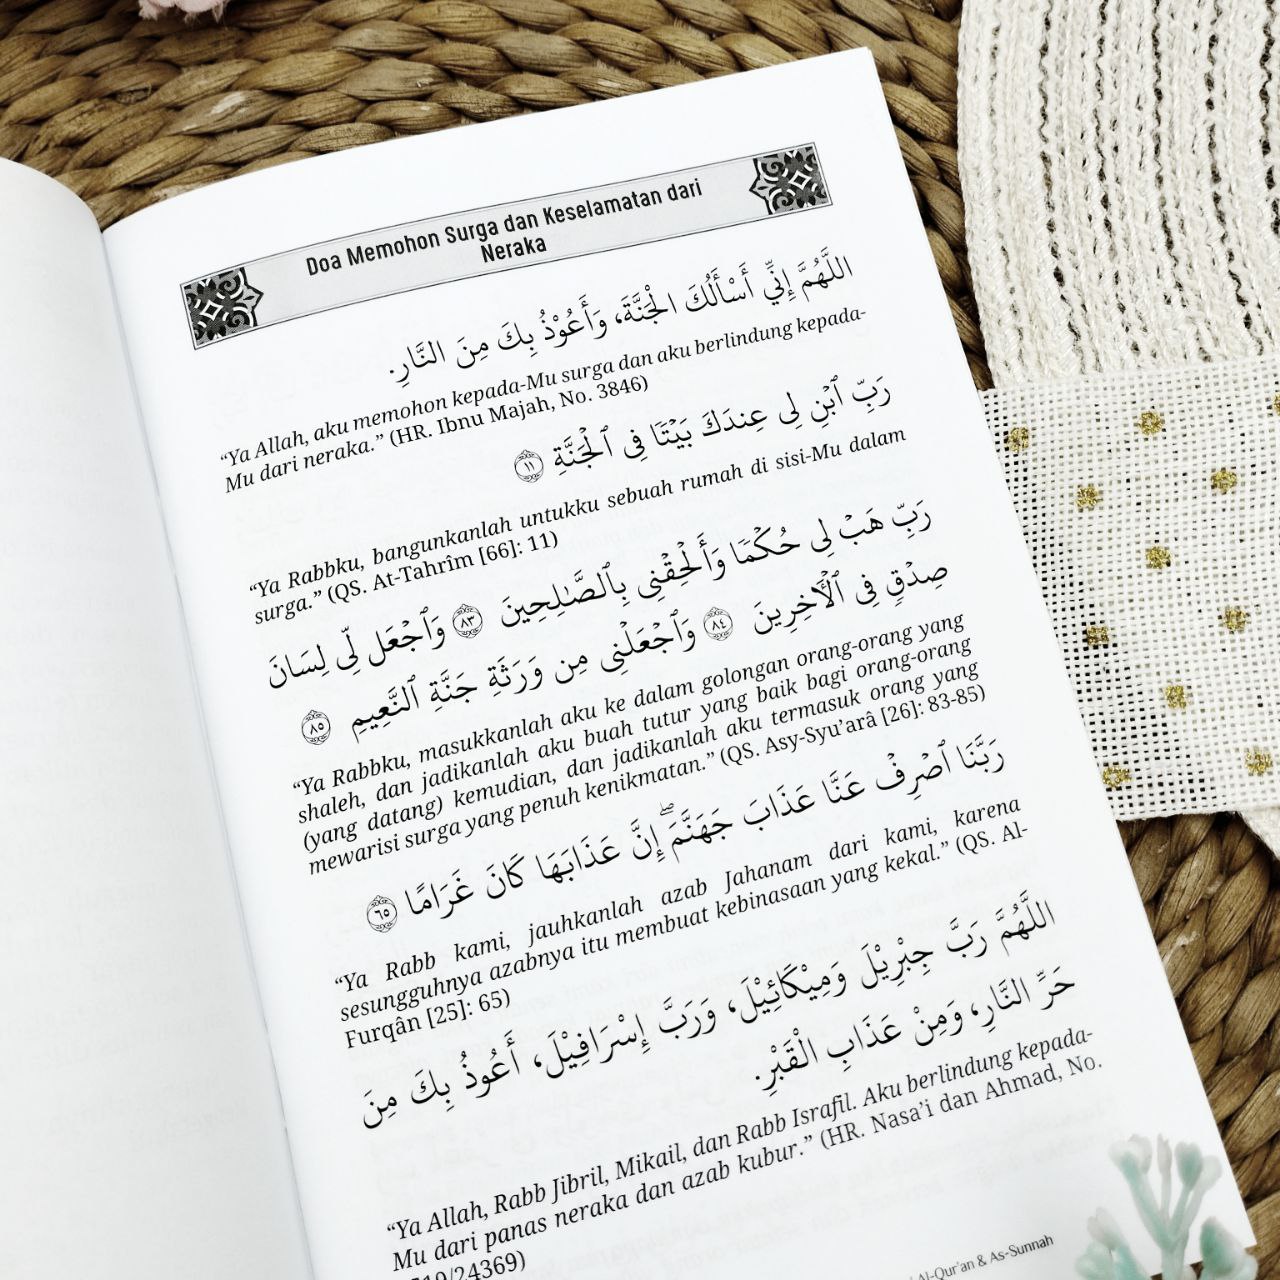 Doa Memohon Surga dan Keselamatan dari
Neraka
اللَّهُمَّ إِنِّي أَسْأَلُكَ الْجَنَّةَ، وَأَعُوْذُ بِكَ مِنَ النَّارِ.
“Ya Allah, aku memohon kepada-Mu surga dan aku berlindung kepada-
Mu dari neraka.” (HR. Ibnu Majah, No. 3846)
رَبِّ ٱبْنِ لِى عِندَكَ بَيْتًا فِى ٱلْجَنَّةِ ١١
“Ya Rabbku, bangunkanlah untukku sebuah rumah di sisi-Mu dalam
surga.” (QS. At-Tahrîm [66]: 11)
رَبِّ هَبْ لِى حُكْمًا وَأَلْحِقْنِى بِٱلصَّٰلِحِينَ ٨٣ وَٱجْعَل لِّى لِسَانَ
صِدْقٍ فِى ٱلْأَخِرِينَ ٨٤ وَٱجْعَلْنِى مِن وَرَثَةِ جَنَّةِ ٱلنَّعِيمِ ٨٥
“Ya Rabbku, masukkanlah aku ke dalam golongan orang-orang yang
shaleh, dan jadikanlah aku buah tutur yang baik bagi orang-orang
(yang datang) kemudian, dan jadikanlah aku termasuk orang yang
mewarisi surga yang penuh kenikmatan.” (QS. Asy-Syu’arâ [26]: 83-85)
رَبَّنَا ٱصْرِفْ عَنَّا عَذَابَ جَهَنَّمَ ۖ إِنَّ عَذَابَهَا كَانَ غَرَامًا ٦٥
“Ya Rabb kami, jauhkanlah azab Jahanam dari kami, karena
sesungguhnya azabnya itu membuat kebinasaan yang kekal.” (QS. Al-
Furqân [25]: 65)
اللَّهُمَّ رَبَّ جِبْرِيْلَ وَمِيْكَائِيْلَ، وَرَبَّ إِسْرَافِيْلَ، أَعُوْذُ بِكَ مِنَ
حَرِّ النَّارِ، وَمِنْ عَذَابِ الْقَبْرِ.
“Ya Allah, Rabb Jibril, Mikail, dan Rabb Israfil. Aku berlindung kepada-
Mu dari panas neraka dan azab kubur.” (HR. Nasa’i dan Ahmad, No.
/24369)
Al-Qur’an & As-Sunnah